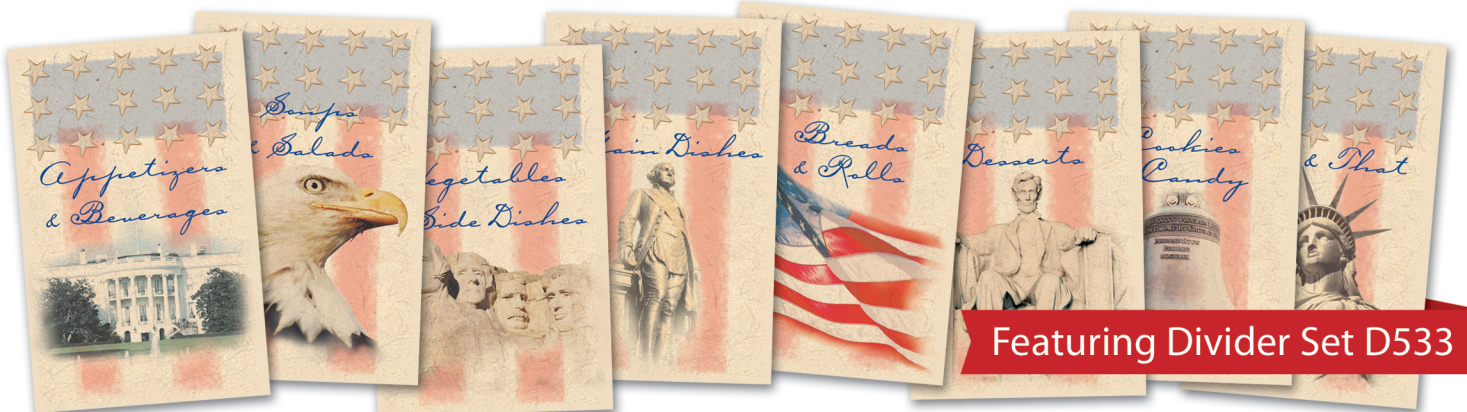 Appetizers
& Beverages
Soups
& Salads
egetables
Side Dishes
ain Dishes
Breads
& Rolls
Desserts
Cookies
Candy
& That
Featuring Divider Set D533